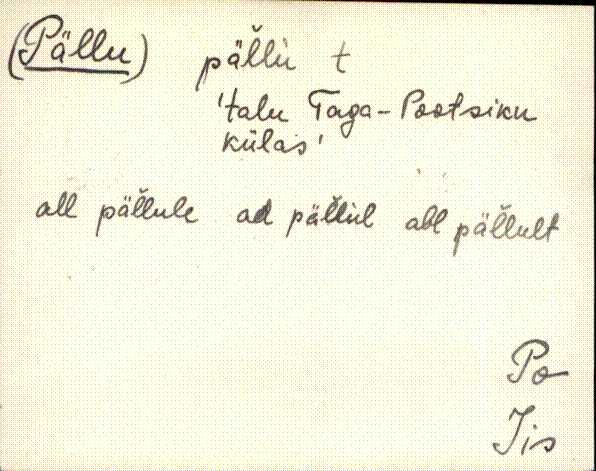 (Pällu) pällù t
'talu Taga-Pootsiku
külas'
all pällule ad pällul abl pällult
Po
Jis